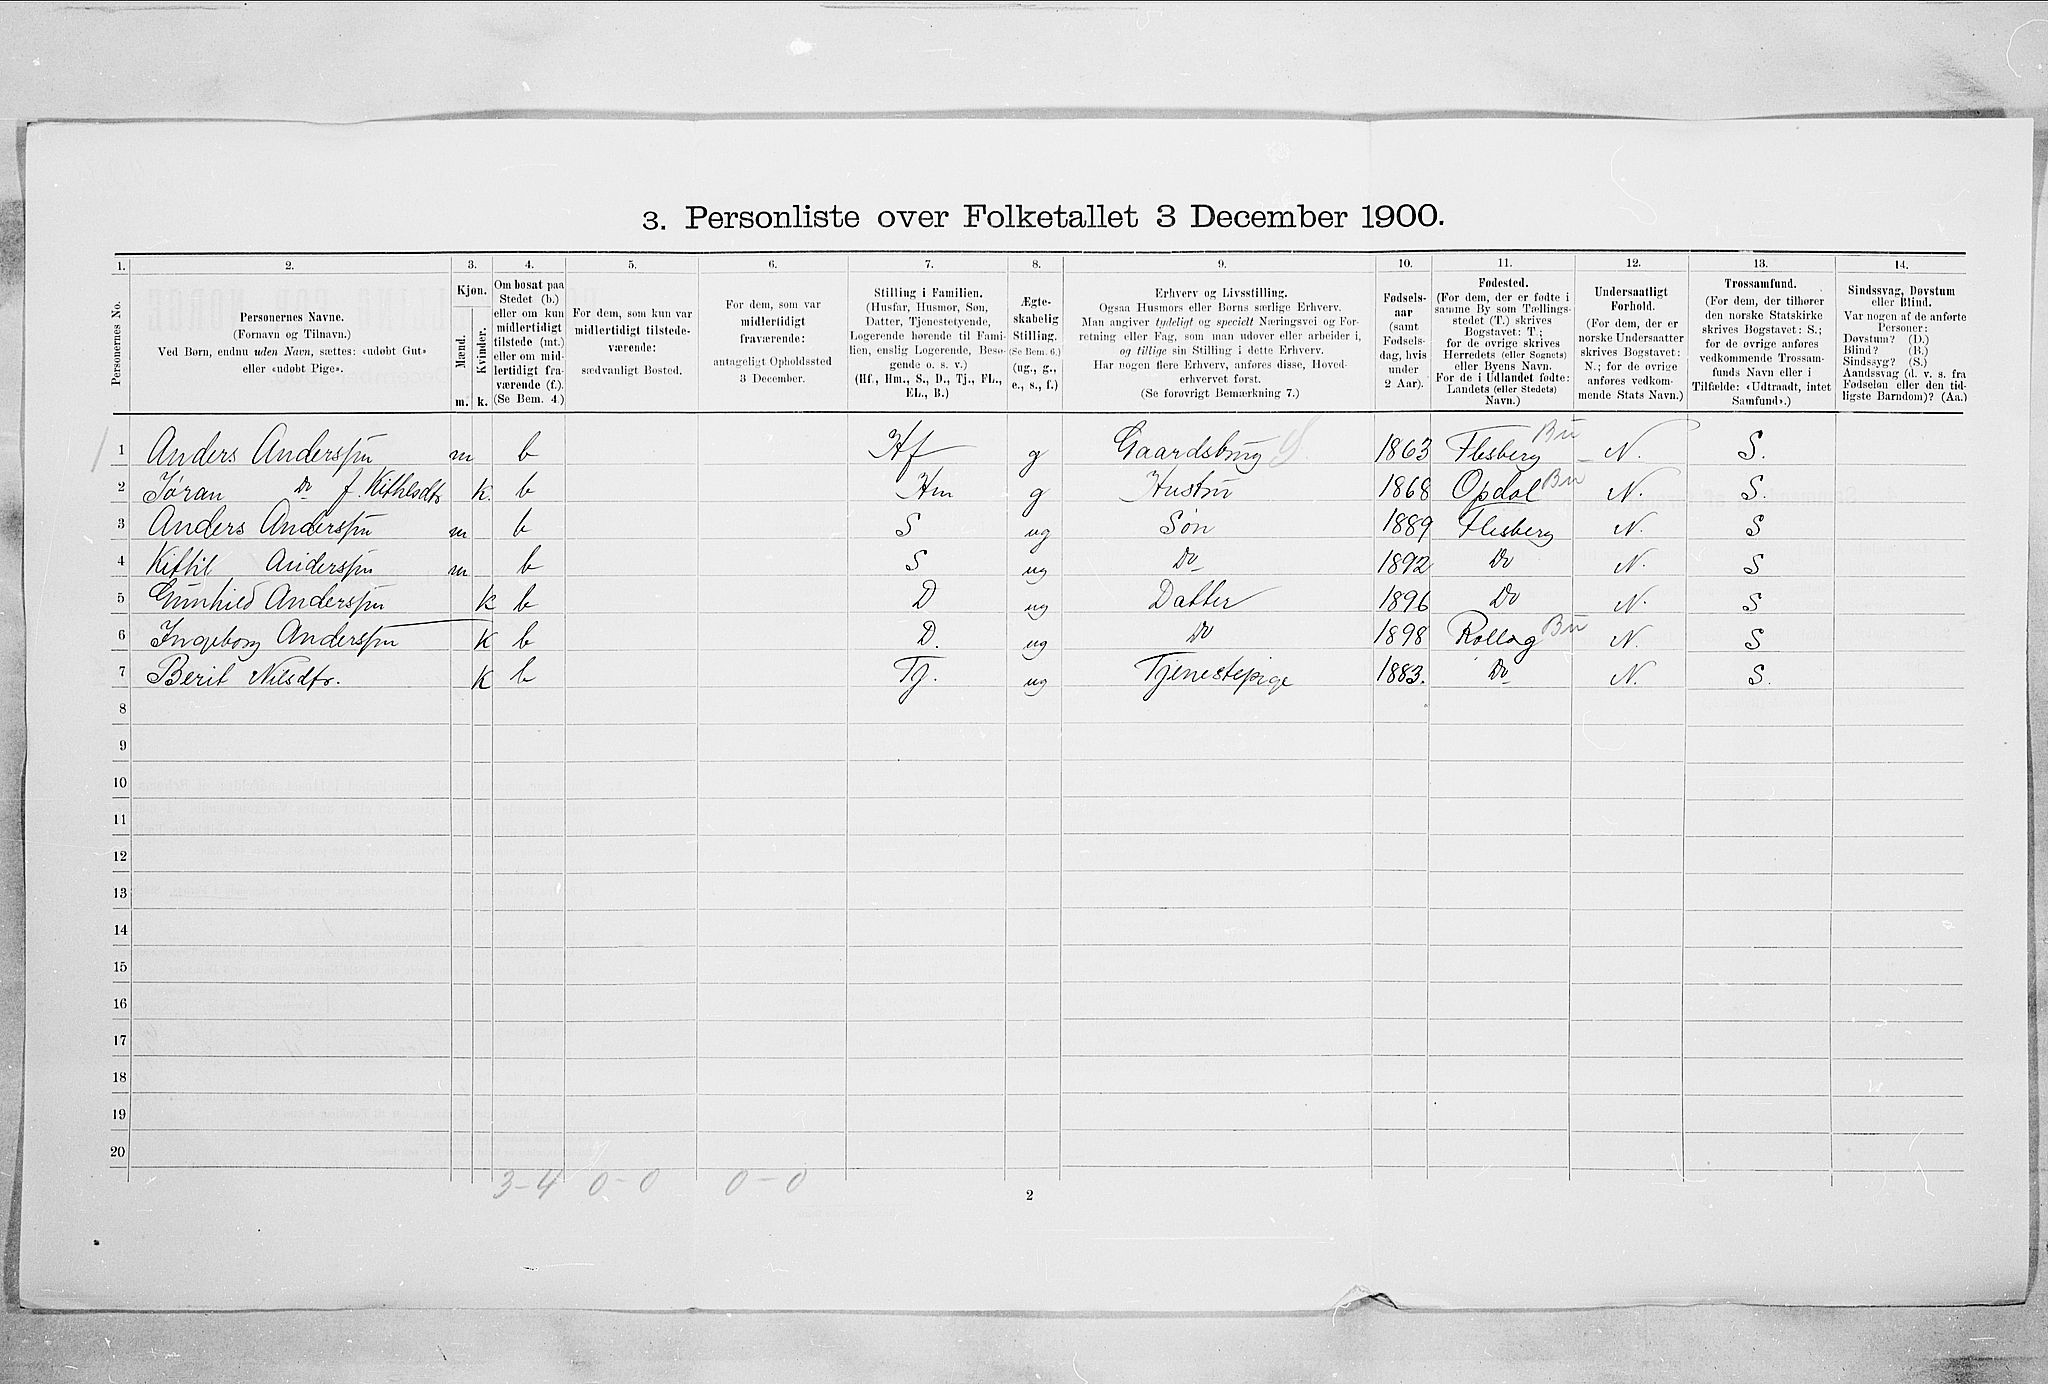 3. Personliste over Folketallet 3 December 1900.
1. 2. 3. 4. 5. 6. 7. 8. 9. 10. 11. 12. 13. 14.
Personernes No.
Personernes Navne.
(Fornavn og Tilnavn.)
Ved Børn, endnu uden Navn, sættes: «udøbt Gut»
eller «udøbt Pige».
Kjøn.
Mænd.
Kvinder.
m. k.
Om bosat paa
Stedet (b.)
eller om kun
midlertidigt
tilstede (mt.)
eller om mid-
lertidigt fra-
værende (f.).
(Se Bem. 4.)
For dem, som kun var
midlertidigt tilstede-
værende:
sædvanligt Bosted.
For dem, som var
midlertidigt
fraværende:
antageligt Opholdssted
3 December.
Stilling i Familien.
(Husfar, Husmor, Søn,
Datter, Tjenestetyende,
Logerende hørende til Fami-
lien, enslig Logerende, Besø-
gende o. s. v.)
(Hf., Hm., S., D., Tj., FL.,
EL., B.)
Ægte-
skabelig
Stilling.
(Se Bem. 6.)
(ug., g.,
e., s., f.)
Erhverv og Livsstilling.
Ogsaa Husmors eller Børns særlige Erhverv.
Man angiver tydeligt og specielt Næringsvei og For-
retning eller Fag, som man udøver eller arbeider i,
og tillige sin Stilling i dette Erhverv.
Har nogen flere Erhverv, anføres disse, Hoved-
erhvervet først.
(Se forøvrigt Bemærkning 7.)
Fødsels-
aar
(samt
Fødsels-
dag, hvis
under
2 Aar).
Fødested.
(For dem, der er fødte i
samme By som Tællings-
stedet (T.) skrives
Bogstavet: T.;
for de øvrige skrives
Herredets (eller Sognets)
eller Byens Navn.
For de i Udlandet fødte:
Landets (eller Stedets)
Navn.)
Undersaatligt
Forhold.
(For dem, der er
norske Undersaatter
skrives Bogstavet:
N.; for de øvrige
anføres vedkom-
mende Stats Navn.)
Trossamfund.
(For dem, der tilhører
den norske Statskirke
skrives Bogstavet: S.;
for de øvrige anføres
vedkommende Trossam-
funds Navn eller i
Tilfælde: «Udtraadt, intet
Samfund».)
Sindssvag, Døvstum
eller Blind.
Var nogen af de anførte
Personer:
Døvstum? (D.)
Blind? (B.)
Sindssyg? (S.)
Aandssvag (d. v. s. fra
Fødselen eller den tid-
ligste Barndom)? (Aa.)
1 1 Anders Anderssen m b Hf g Gaardsbrug S. 1863 Flesberg Bu N. S.
2 Jøran Do f. Kithlsdtr k. b Hm g Hustru 1868 Opdal Bu N. S.
3 Anders Anderssen m b S ug Søn 1889 Flesberg N. S
4 Kittil Anderssen m b S ug Do 1892 Do N. S
5 Gunhild Anderssen k b D ug Datter 1896 Do N. S
6 Ingeborg Anderssen k b D. ug Do 1898 Rollag Bu N. S
7 Berit Nilsdtr. k b Tj. ug Tjenestepige 1883. Do N. S.
8
9
10
11
12
13
14
15
16
17
18
19
20
3-4 0-0 0-0
2